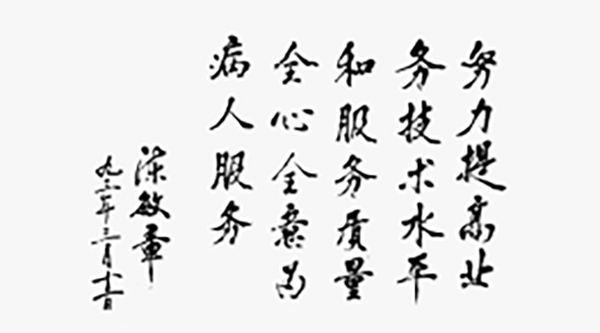 努力提高业
务技术水平
和服务质量
全心全意为
病人服务
陈敏章
年三月